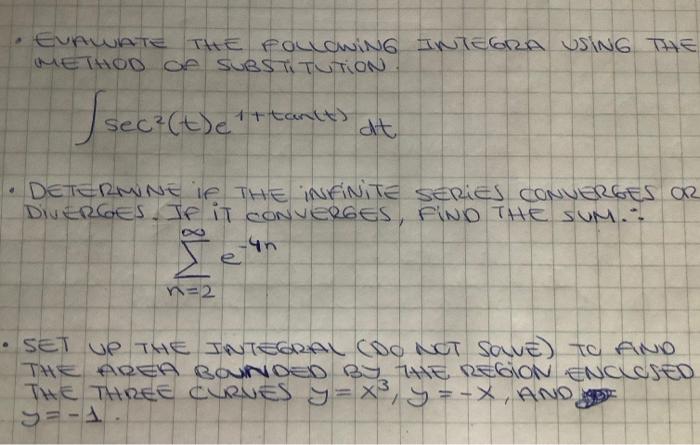 • EVALUATE THE FOLLOWING INTEGRA USING THE
METHOD OF SUBSTITUTION.
∫ sec²(t)e^{1+tan(t)} dt
• DETERMINE IF THE INFINITE SERIES CONVERGES OR
DIVERGES. IF IT CONVERGES, FIND THE SUM.:
∞
∑ e^{-4n}
n=2
• SET UP THE INTEGRAL (DO NOT SOLVE) TO FIND
THE AREA BOUNDED BY THE REGION ENCLOSED
THE THREE CURVES y=x³, y=-x, AND
y=-1.